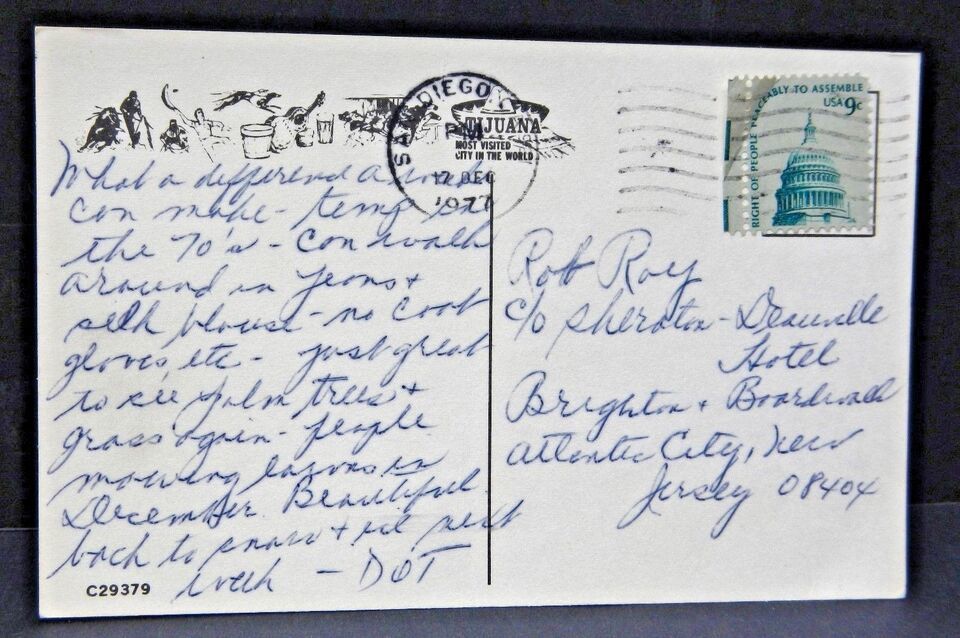 SAN DIEGO
PM
17 DEC
1977
TIJUANA
MOST VISITED
CITY IN THE WORLD
RIGHT OF PEOPLE PEACEABLY TO ASSEMBLE
USA 9c
What a difference a week
can make - temp in
the 70's - can walk
around in jeans +
silk blouse - no coat
gloves, etc - just great
to see palm trees +
grass again - people
mowing lawns in
December. Beautiful.
back to snow + ice next
week - DOT
Rob Roy
c/o Sheraton - Deauville
Hotel
Brighton + Boardwalk
Atlantic City, New
Jersey 08404
C29379